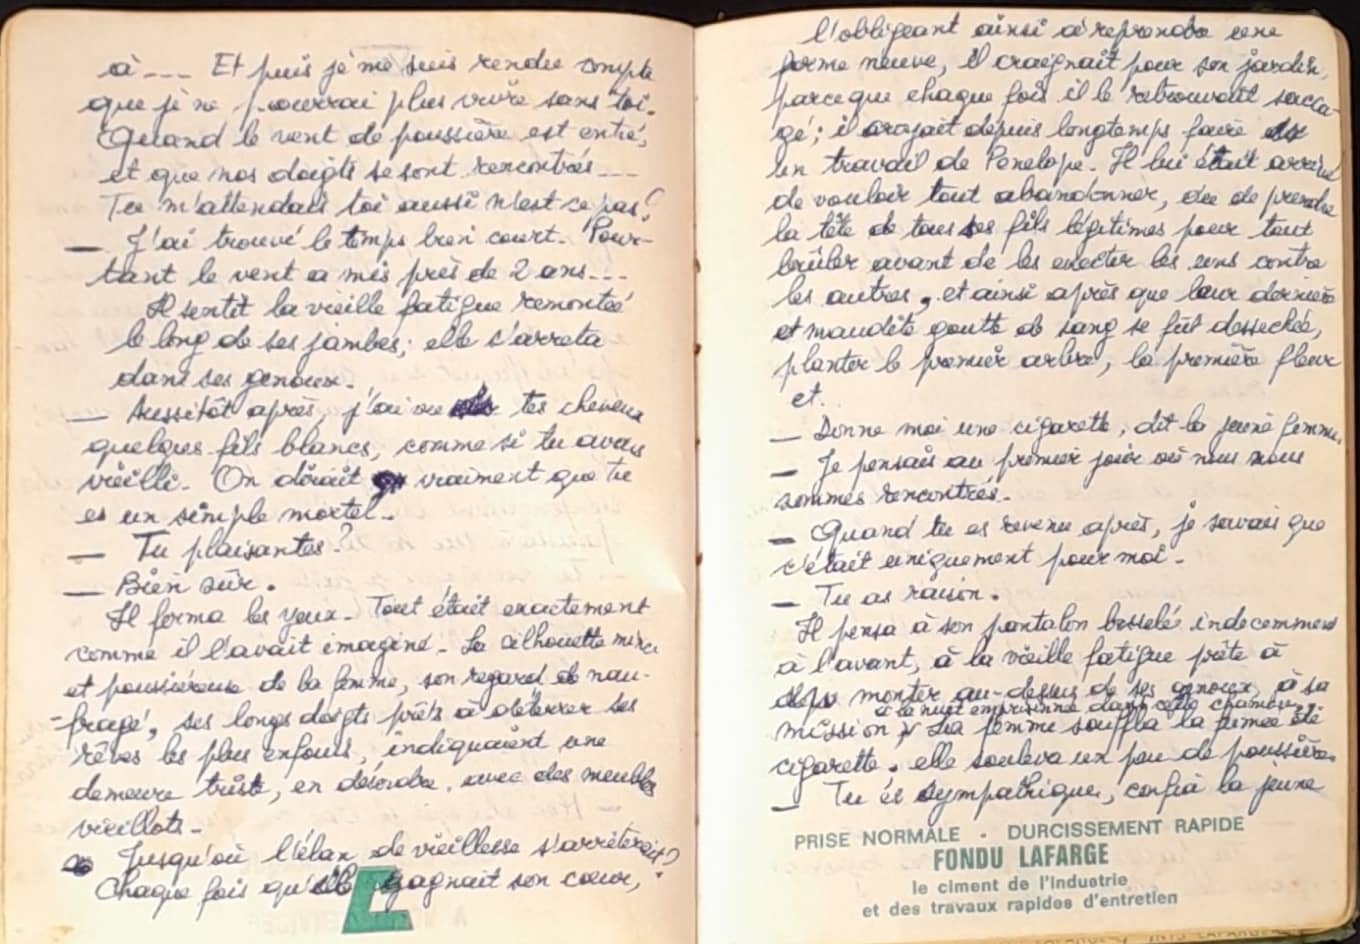 à --- Et puis je me suis rendu compte
que je ne pourrai plus vivre sans toi.
Quand le vent de poussière est entré,
et que nos doigts se sont rencontrés ---
Tu m'attendais toi aussi n'est ce pas?
— J'ai trouvé le temps bien court. Pour-
tant le vent a mis près de 2 ans ---
Il sentit la vieille fatigue remonter
le long de ses jambes; elle s'arreta
dans ses genoux.
— Aussitôt après, j'ai vu tes cheveux
quelques fils blancs, comme si tu avais
vieilli. On dirait vraiment que tu
es un simple mortel.
— Tu plaisantes?
— Bien sûr.
Il ferma les yeux. Tout était exactement
comme il l'avait imaginé. La silhouette mince
et poussiéreuse de la femme, son regard de nau-
-fragé, ses longs doigts prêts à déterrer ses
rêves les plus enfouis, indiquaient une
demeure triste, en désordre, avec des meubles
vieillots.
Jusqu'où l'élan de vieillesse s'arrêterait?
Chaque fois qu'elle gagnait son cœur,
l'obligeant ainsi à reprendre une
forme neuve, il craignait pour son jardin,
parce que chaque fois il le retrouvait sacca-
gé; il croyait depuis longtemps faire
un travail de Penelope. Il lui était arrivé
de vouloir tout abandonner, ou de prendre
la tête de tous ses fils légitimes pour tout
brûler avant de les exciter les uns contre
les autres, et ainsi après que leur dernière
et maudite goutte de sang se fût dessechée,
planter le premier arbre, la première fleur
et.
— Donne moi une cigarette, dit la jeune femme.
— Je pensais au premier jour où nous nous
sommes rencontrés.
— Quand tu es revenu après, je savais que
c'était uniquement pour moi.
— Tu as raison.
Il pensa à son pantalon bosselé indecemment
à l'avant, à la vieille fatigue prête à
monter au-dessus de ses genoux, à sa
à la nuit emprisonné dans cette chambre.
mission La femme souffla la fumée de
cigarette, elle souleva un peu de poussière.
— Tu es sympathique, confia la jeune
PRISE NORMALE - DURCISSEMENT RAPIDE
FONDU LAFARGE
le ciment de l'industrie
et des travaux rapides d'entretien